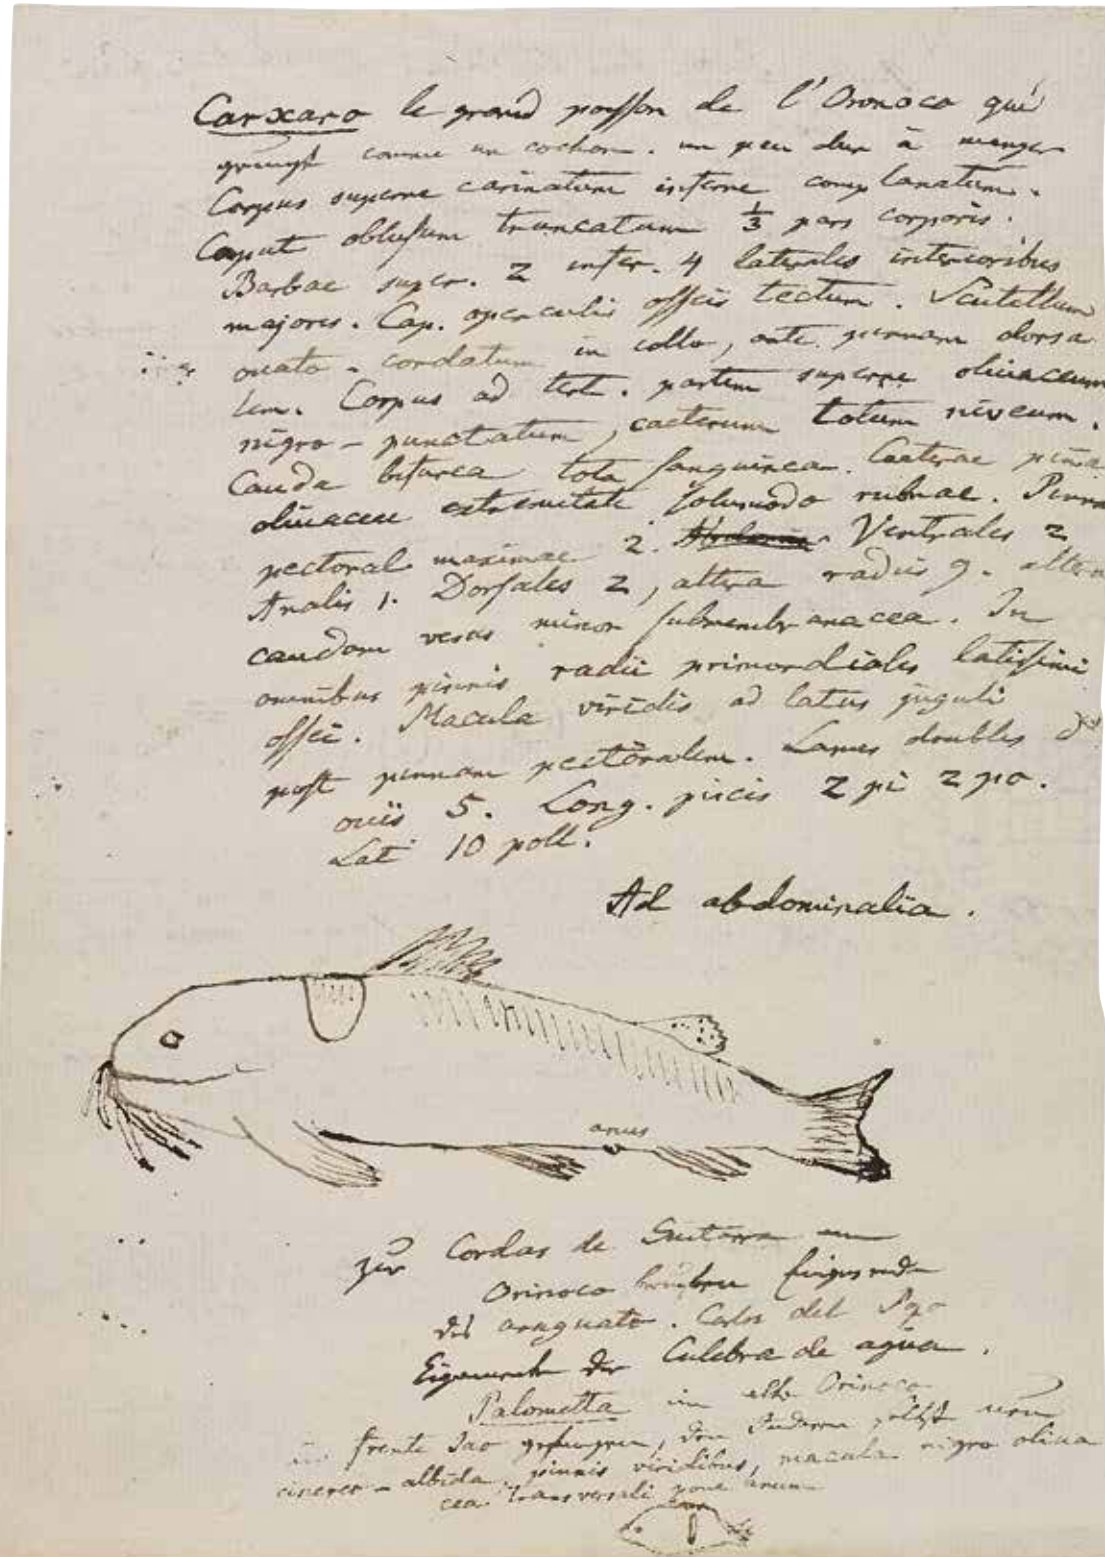 Carxaro le grand poisson de l'Oronoco qui
grungt comme un cochon. un peu dur à manger
Corpus superne carinatum inferne complanatum.
Caput obtusum truncatum 1/3 pars corporis.
Barbae super. 2 infer. 4 laterales interioribus
majores. Cap. operculis osseis tectum. Scutellum
ovato-cordatum in collo, ante pinnam dorsa
lem. Corpus ad tert. partem superne olivaceum
nigro-punctatum, caeterum totum niveum.
Cauda bifurca tota sanguinea. Caeterae pinna
olivaceae extremitate solumodo rubrae. Pinna
pectoral maximae 2. Ventrales 2
Analis 1. Dorsales 2, altera radiis 9. altera
caudam versus minor submembranacea. In
omnibus pinnis radii primordiales latissimi
ossei. Macula viridis ad latus juguli
post pinnam pectoralem. Lames doubles d'
ouïs 5. Long. piscis 2 pi 2 po.
Lati 10 poll.
Ad abdominalia.
anus
zur Cordas de Guitarra am
Orinoco
des araguato. Carlos del Pozo
der Culebra de agua.
Palometta im alto Orinoco
frente Jao gefangen, den
cinereo-albida, pinnis viridibus, macula nigro oliva
cea transversali pone anum